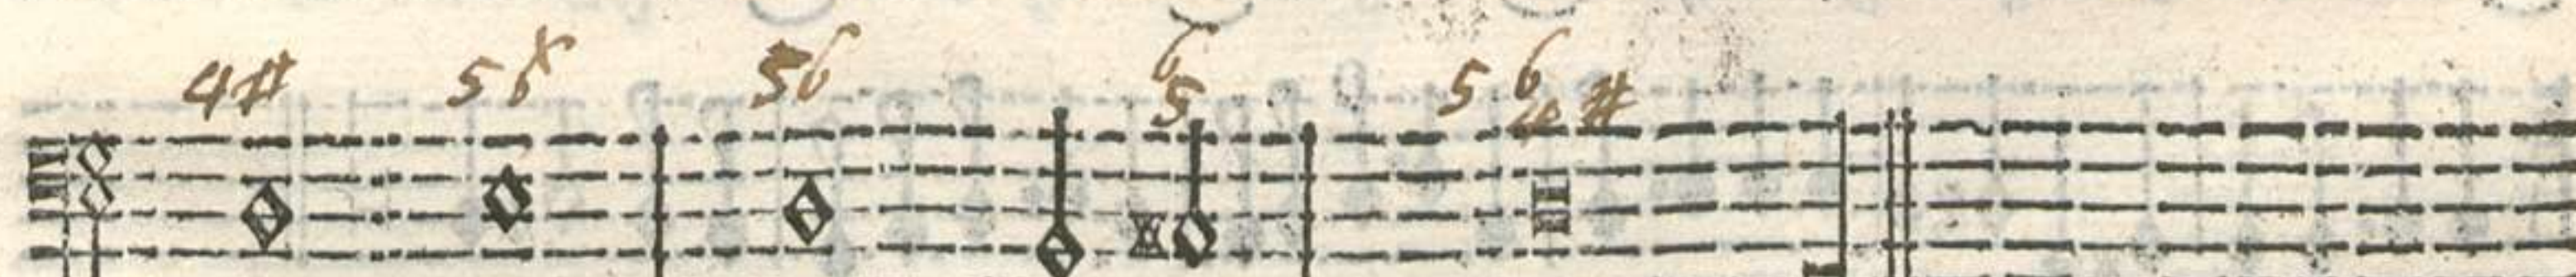 4# 5 6x 56 6 5 5 6 4 #